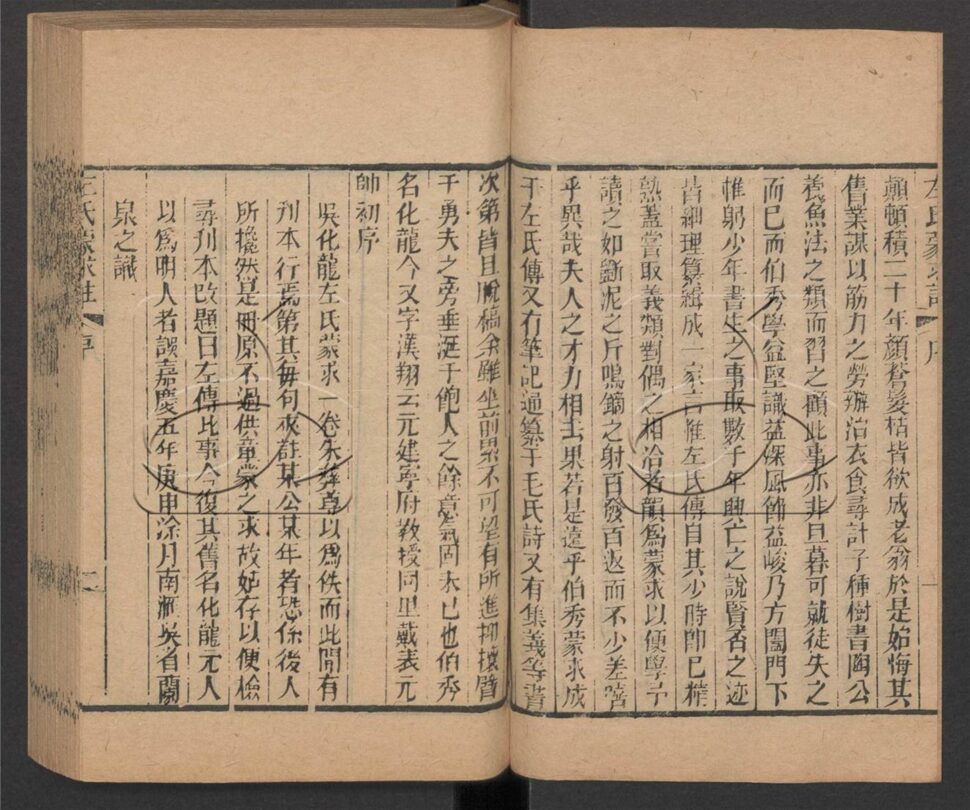 左氏蒙求註 序
顛頓積二十年顏蒼髮梢皆欲成老翁於是始悔其
售業謀以筋力之勞辦治衣食尋計子種樹書陶公
養魚法之類而習之顧此事亦非旦暮可就徒失之
而已而伯秀學益堅識益深風節益峻乃方闔門下
帷躬少年書生之事取數千年興亡之說賢否之迹
皆細理纂緝成一家言惟左氏傳自其少時卽已雜
熟蓋嘗取義類對偶之相洽者韻爲蒙求以便學子
讀之如斲泥之斤鳴鏑之射百發百返而不少差嘻
乎異哉夫人之才力相去果若是遠乎伯秀蒙求成
于左氏傳又有筆記通纂于毛氏詩又有集義等書
次第皆且脫稿余雖坐前累不可望有所進抑攘臂
于勇夫之旁垂涎于飽人之餘意氣固未已也伯秀
名化龍今又字漢翔云元建寧府教授同里戴表元
帥初序
吳化龍左氏蒙求一卷朱彝尊以爲佚而此閒有
刊本行焉第其每句夾註某公某年者恐係後人
所攙然是冊原不過供童蒙之求故姑存以便檢
尋刊本改題曰左傳比事今復其舊名化龍元人
以爲明人者誤嘉慶五年庚申涂月南滙吳省蘭
泉之識
左氏蒙求註 序 二